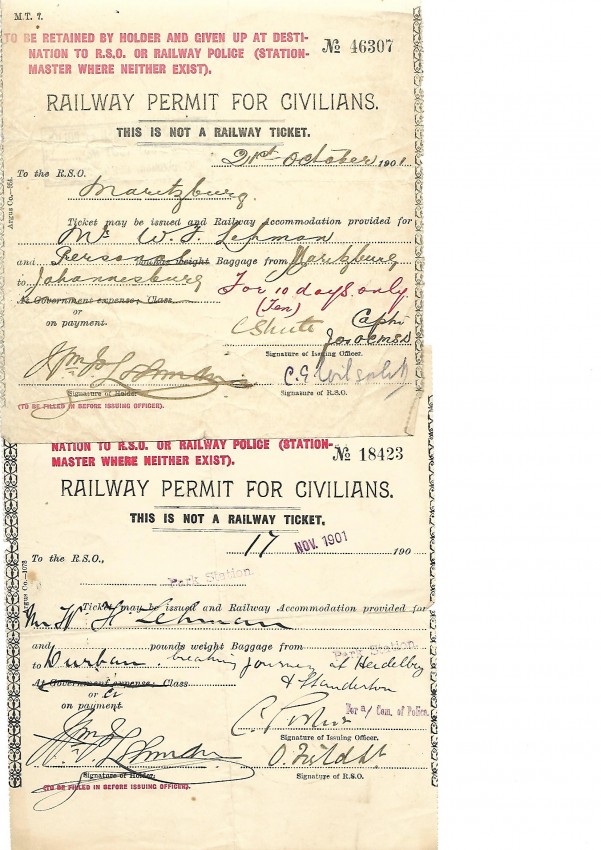 M.T. 7.
TO BE RETAINED BY HOLDER AND GIVEN UP AT DESTI-
NATION TO R.S.O. OR RAILWAY POLICE (STATION-
MASTER WHERE NEITHER EXIST).
№ 46307
RAILWAY PERMIT FOR CIVILIANS.
THIS IS NOT A RAILWAY TICKET.
21st October 1901
To the R.S.O.
Maritzburg.
Argus Co.—
Ticket may be issued and Railway Accommodation provided for
Mr W. J. Lehman
and Personal pounds weight Baggage from Maritzburg
to Johannesburg
At Government expense, Class
For 10 days only
(Ten)
or
on payment.
C Shute Capt
Signature of Issuing Officer.
Wm J. Lehman
Signature of Holder
Signature of R.S.O.
(TO BE FILLED IN BEFORE ISSUING OFFICER).
NATION TO R.S.O. OR RAILWAY POLICE (STATION-
MASTER WHERE NEITHER EXIST).
№ 18423
RAILWAY PERMIT FOR CIVILIANS.
THIS IS NOT A RAILWAY TICKET.
17 NOV. 1901 190
To the R.S.O.,
Park Station.
Argus Co.—1078
Ticket may be issued and Railway Accommodation provided for
Mr W. H. Lehman
and pounds weight Baggage from Park Station.
to Durban. breaking journey at Heidelberg
& Standerton
At Government expense, Class
or
on payment
For a/ Com. of Police.
Signature of Issuing Officer.
Wm J. Lehman
Signature of Holder.
Signature of R.S.O.
(TO BE FILLED IN BEFORE ISSUING OFFICER).